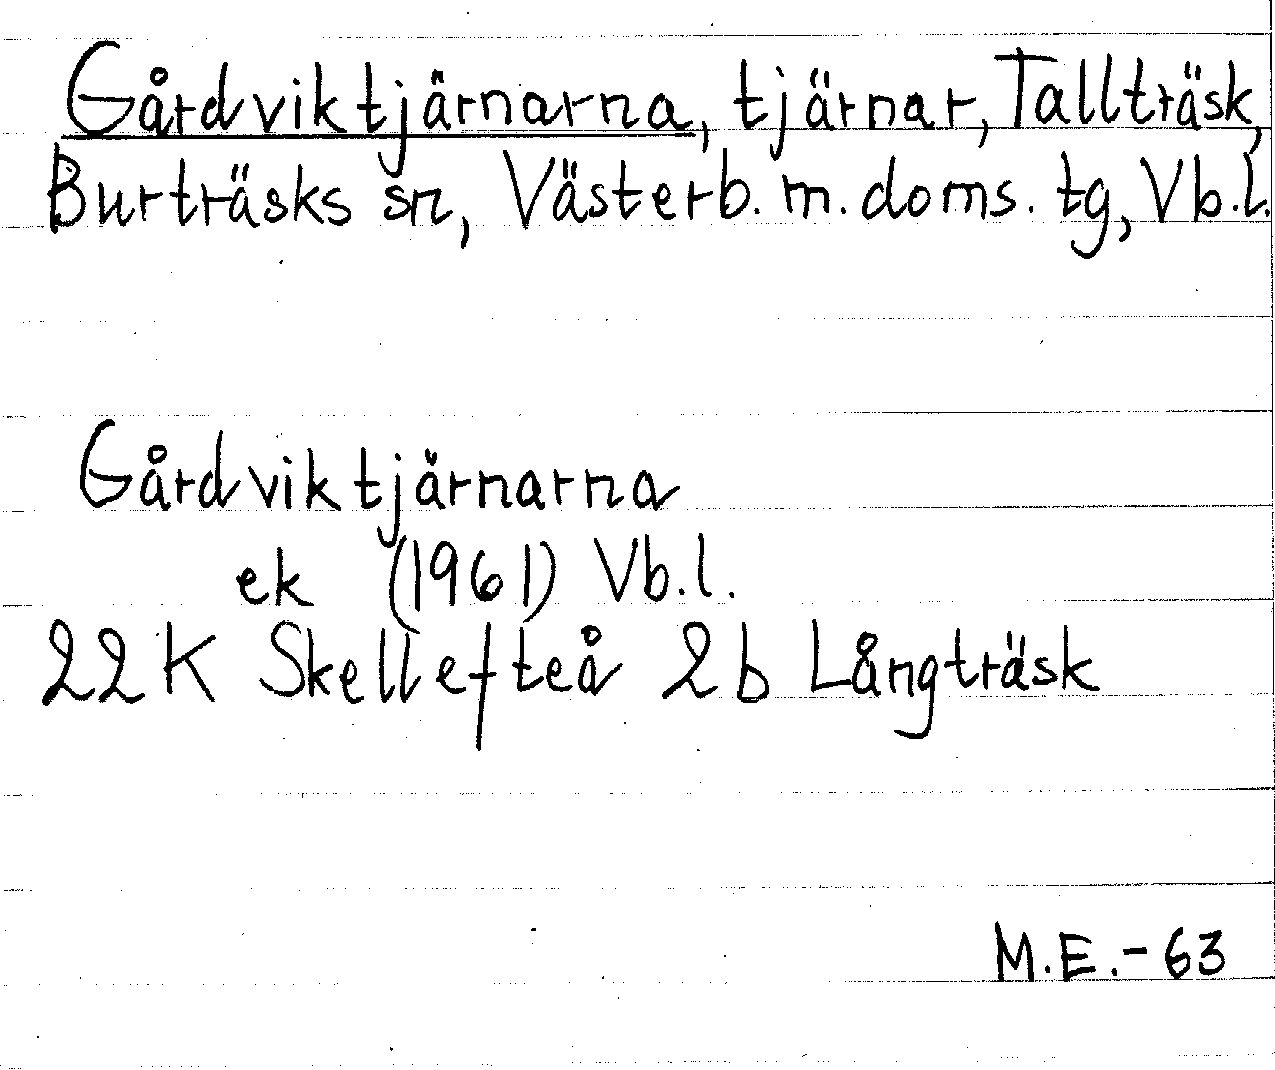 Gårdviktjärnarna, tjärnar, Tallträsk,
Burträsks sn, Västerb. m. doms. tg, Vb.l.
Gårdviktjärnarna
ek (1961) Vb.l.
22K Skellefteå 2b Långträsk
M.E.-63